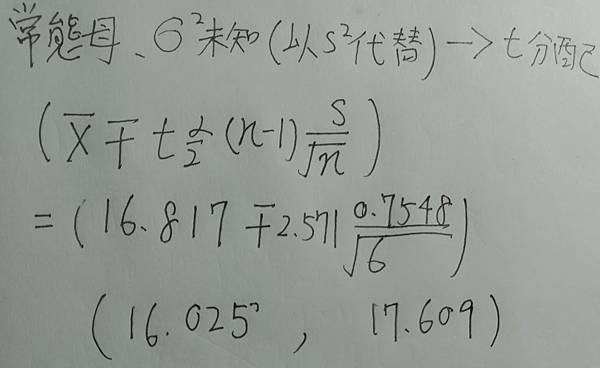 常態母、σ²未知(以S²代替)→t分配
(X̄ ∓ t α/2 (n-1) S/√n)
= (16.817 ∓ 2.571 0.7548/√6)
(16.025 , 17.609)